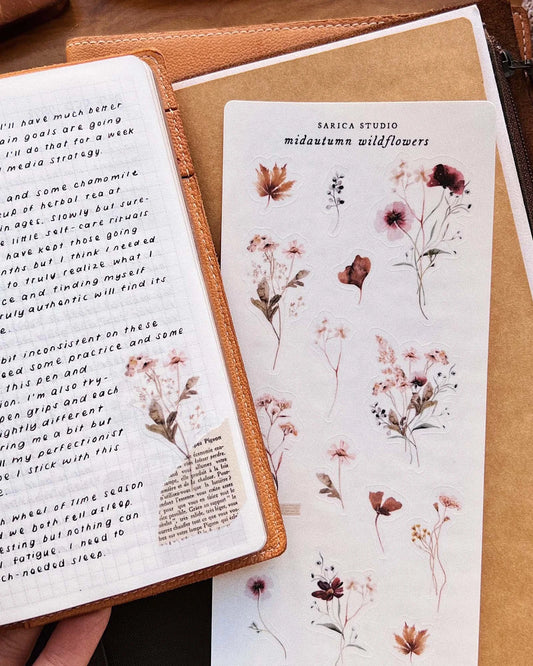 I'll have much better
ain goals are going
I'll do that for a week
media strategy.
and some chamomile
cup of herbal tea at
in ages. Slowly but sure-
e little self-care rituals
have kept those going
nths but I think I needed
to truly realize what I
ce and finding myself
ruly authentic will find its
e.
bit inconsistent on these
eed some practice and some
this pen and
ion. I'm also try-
pen grips and each
lightly different
ring me a bit but
ll my perfectionist
pe I stick with this
e
h Wheel of Time season
d we both fell asleep.
esting but nothing can
l fatigue. I need to
ch-needed sleep.
Pigeon
SARICA STUDIO
midautumn wildflowers